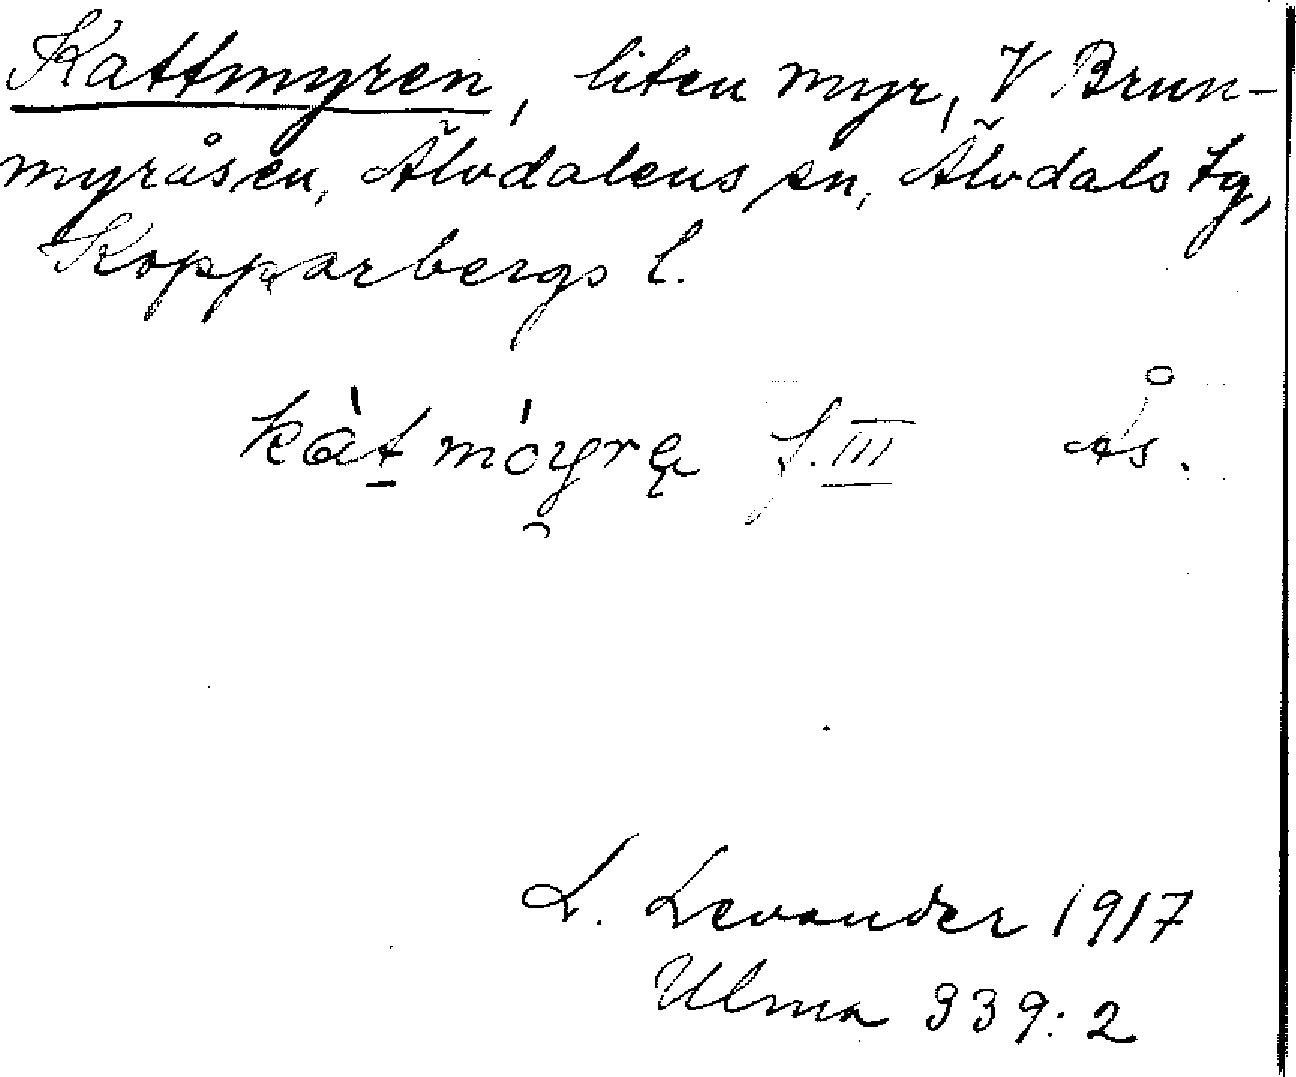 Kattmyren, liten myr, V Brun-
myråsen, Älvdalens sn, Älvdals tg,
Kopparbergs l.
kàt móyrę f. III Ås.
L. Levander 1917
Ulma 339:2